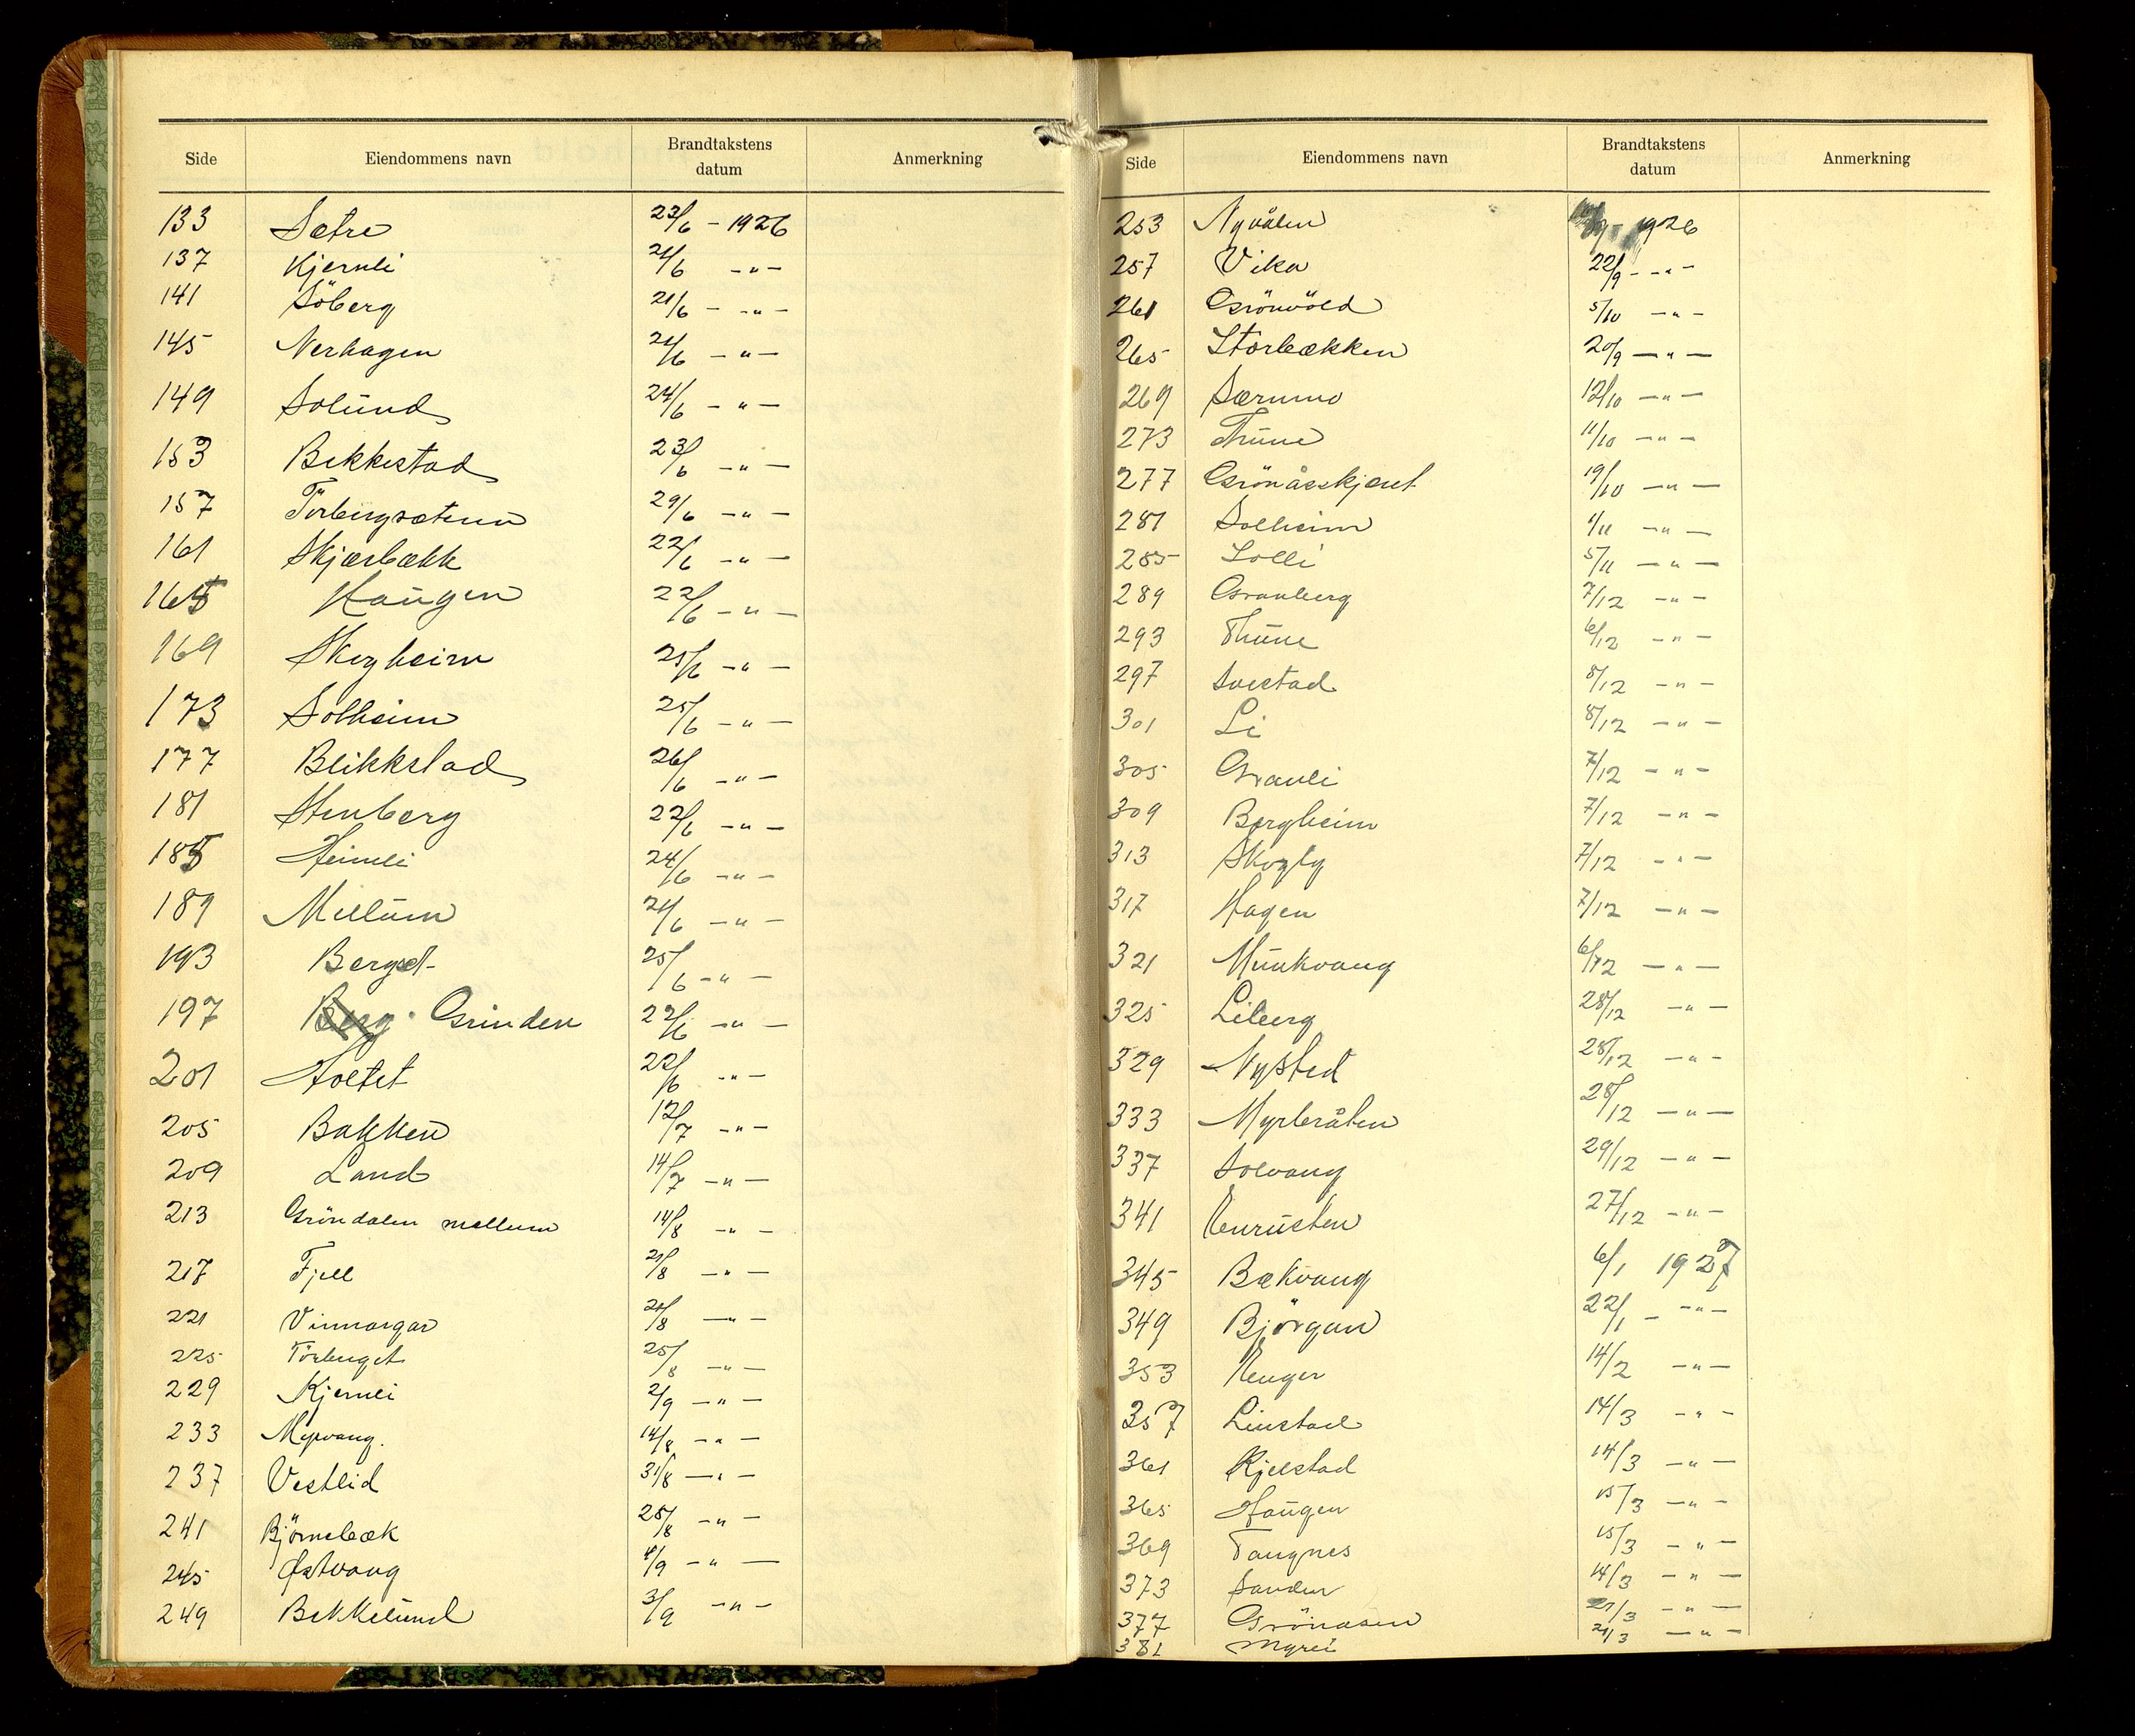 Side Eiendommens navn Brandtakstens datum Anmerkning
133 Sætre 23/6 - 1926
137 Kjernli 24/6 - " -
141 Söberg 21/6 - " -
145 Nerhagen 24/6 - " -
149 Solund 24/6 - " -
153 Bekkestad 23/6 - " -
157 Törbergsæteren 29/6 - " -
161 Skjærbækk 22/6 - " -
165 Haugen 22/6 - " -
169 Skogheim 25/6 - " -
173 Solheim 25/6 - " -
177 Blikkstad 26/6 - " -
181 Stenberg 22/6 - " -
185 Heimli 24/6 - " -
189 Mellum 24/6 - " -
193 Bergset 25/6 - " -
197 Berg. Grinden 22/6 - " -
201 Holtet 22/6 - " -
205 Bakken 12/7 - " -
209 Land 14/7 - " -
213 Gröndalen mellem 14/8 - " -
217 Fjell 21/8 - " -
221 Vinmorgar 21/8 - " -
225 Törberget 25/8 - " -
229 Kjernli 2/9 - " -
233 Myrvang. 14/8 - " -
237 Vestlid 31/8 - " -
241 Björnebæk 28/8 - " -
245 Østvang 4/9 - " -
249 Bekkelund 3/9 - " -
Side Eiendommens navn Brandtakstens datum Anmerkning
253 Nyvålen 1926
257 Vika 22/9 - " -
261 Grönvold 5/10 - " -
265 Storbækken 20/9 - " -
269 Særnmo 12/10 - " -
273 Thune 11/10 - " -
277 Grönåsskjæret 19/10 - " -
281 Solheim 4/11 - " -
285 Solli 5/11 - " -
289 Granberg 7/12 - " -
293 Thune 6/12 - " -
297 Svestad 8/12 - " -
301 Li 8/12 - " -
305 Granli 7/12 - " -
309 Bergheim 7/12 - " -
313 Skogly 7/12 - " -
317 Hagen 7/12 - " -
321 Munkvang 6/12 - " -
325 Liberg 28/12 - " -
329 Nysted 28/12 - " -
333 Myrbråten 28/12 - " -
337 Solvang 29/12 - " -
341 Enrusten 27/12 - " -
345 Bækvang 6/1 1927
349 Björgan 22/1 - " -
353 Enger 14/2 - " -
357 Linstad 14/3 - " -
361 Kjelstad 14/3 - " -
365 Haugen 15/3 - " -
369 Tangnes 15/3 - " -
373 Sanden 14/3 - " -
377 Grönåsen 21/3 - " -
381 Myrli 21/3 - " -